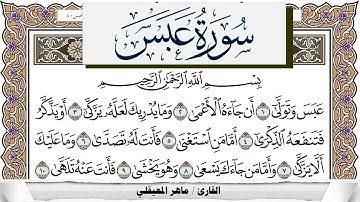 سُورَةُ عَبَسَ
بِسْمِ اللَّهِ الرَّحْمَٰنِ الرَّحِيمِ
عَبَسَ وَتَوَلَّىٰ ١ أَن جَاءَهُ الْأَعْمَىٰ ٢ وَمَا يُدْرِيكَ لَعَلَّهُ يَزَّكَّىٰ ٣ أَوْ يَذَّكَّرُ
فَتَنفَعَهُ الذِّكْرَىٰ ٤ أَمَّا مَنِ اسْتَغْنَىٰ ٥ فَأَنتَ لَهُ تَصَدَّىٰ ٦ وَمَا عَلَيْكَ
أَلَّا يَزَّكَّىٰ ٧ وَأَمَّا مَن جَاءَكَ يَسْعَىٰ ٨ وَهُوَ يَخْشَىٰ ٩ فَأَنتَ عَنْهُ تَلَهَّىٰ ١٠
القارئ / ماهر المعيقلي